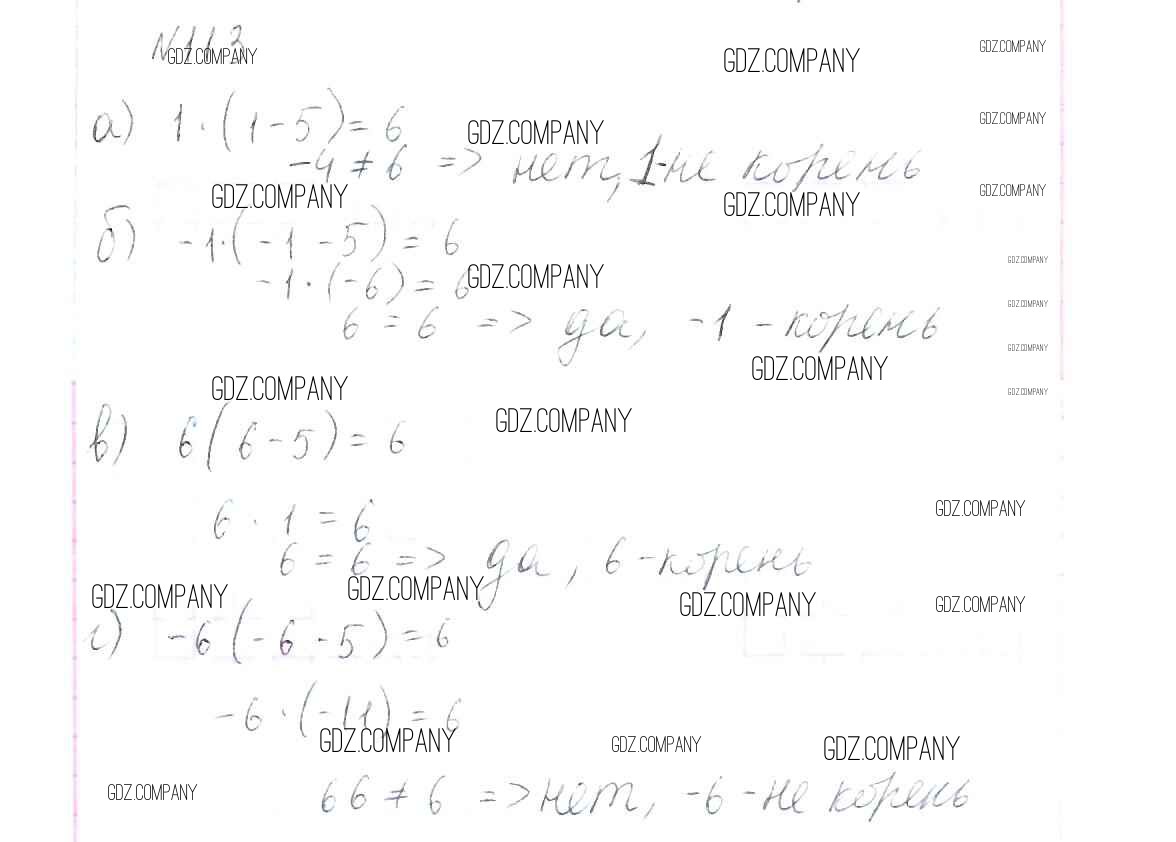 N 11.3
GDZ.COMPANY
GDZ.COMPANY
GDZ.COMPANY
а) 1·(1-5)=6
GDZ.COMPANY
GDZ.COMPANY
-4≠6 => нет, 1-не корень
GDZ.COMPANY
GDZ.COMPANY
GDZ.COMPANY
б) -1·(-1-5)=6
GDZ.COMPANY
-1·(-6)=6
GDZ.COMPANY
GDZ.COMPANY
6=6 => да, -1-корень
GDZ.COMPANY
GDZ.COMPANY
GDZ.COMPANY
GDZ.COMPANY
GDZ.COMPANY
в) 6(6-5)=6
6·1=6
GDZ.COMPANY
6=6 => да, 6-корень
GDZ.COMPANY
GDZ.COMPANY
GDZ.COMPANY
GDZ.COMPANY
г) -6(-6-5)=6
-6·(-11)=6
GDZ.COMPANY
GDZ.COMPANY
GDZ.COMPANY
GDZ.COMPANY
66≠6 => нет, -6-не корень